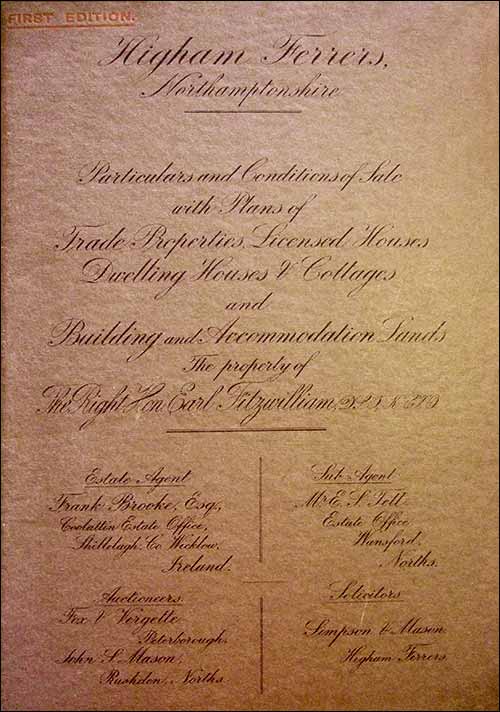 FIRST EDITION.
Higham Ferrers,
Northamptonshire
Particulars and Conditions of Sale
with Plans of
Trade Properties, Licensed Houses
Dwelling Houses & Cottages
and
Building and Accommodation Lands
The property of
The Right Hon. Earl Fitzwilliam,
Estate Agent
Frank Brooke, Esq.,
Coolattin Estate Office,
Shillelagh Co. Wicklow,
Ireland.
Sub Agent
Mr. E. S.
Estate Office
Wansford,
Norths.
Auctioneers.
Fox & Vergette,
Peterborough,
John S. Mason,
Rushden, Norths.
Solicitors
Simpson & Mason
Higham Ferrers